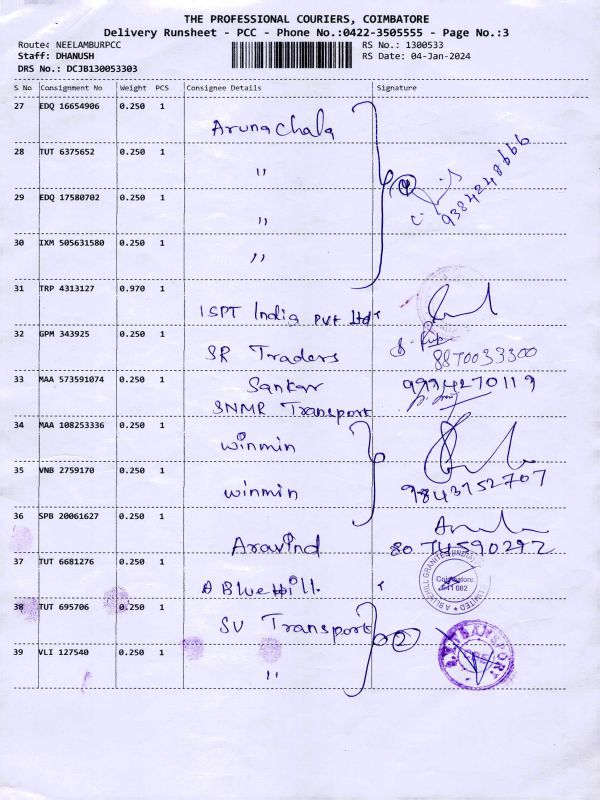 THE PROFESSIONAL COURIERS, COIMBATORE
Delivery Runsheet - PCC - Phone No.:0422-3505555 - Page No.:3
Route: NEELAMBURPCC
RS No.: 1300533
Staff: DHANUSH
RS Date: 04-Jan-2024
DRS No.: DCJB130053303
S No Consignment No Weight PCS Consignee Details Signature
27 EDQ 16654906 0.250 1
Arunachala
28 TUT 6375652 0.250 1
"
4
9384248666
29 EDQ 17580702 0.250 1
"
30 IXM 505631580 0.250 1
"
31 TRP 4313127 0.970 1
ISPT India Pvt Ltd
32 GPM 343925 0.250 1
SR Traders
8870033300
33 MAA 573591074 0.250 1
Sankar 9994270119
SNMR Transport
34 MAA 108253336 0.250 1
winmin
35 VNB 2759170 0.250 1
winmin 9843152707
36 SPB 20061627 0.250 1
Aravind 8074590292
37 TUT 6681276 0.250 1
A Bluehill.
A BLUEHILL GRANITES (INDIA) LIMITED
Coimbatore
641 062
38 TUT 695706 0.250 1
SV Transport 2
39 VLI 127540 0.250 1
"